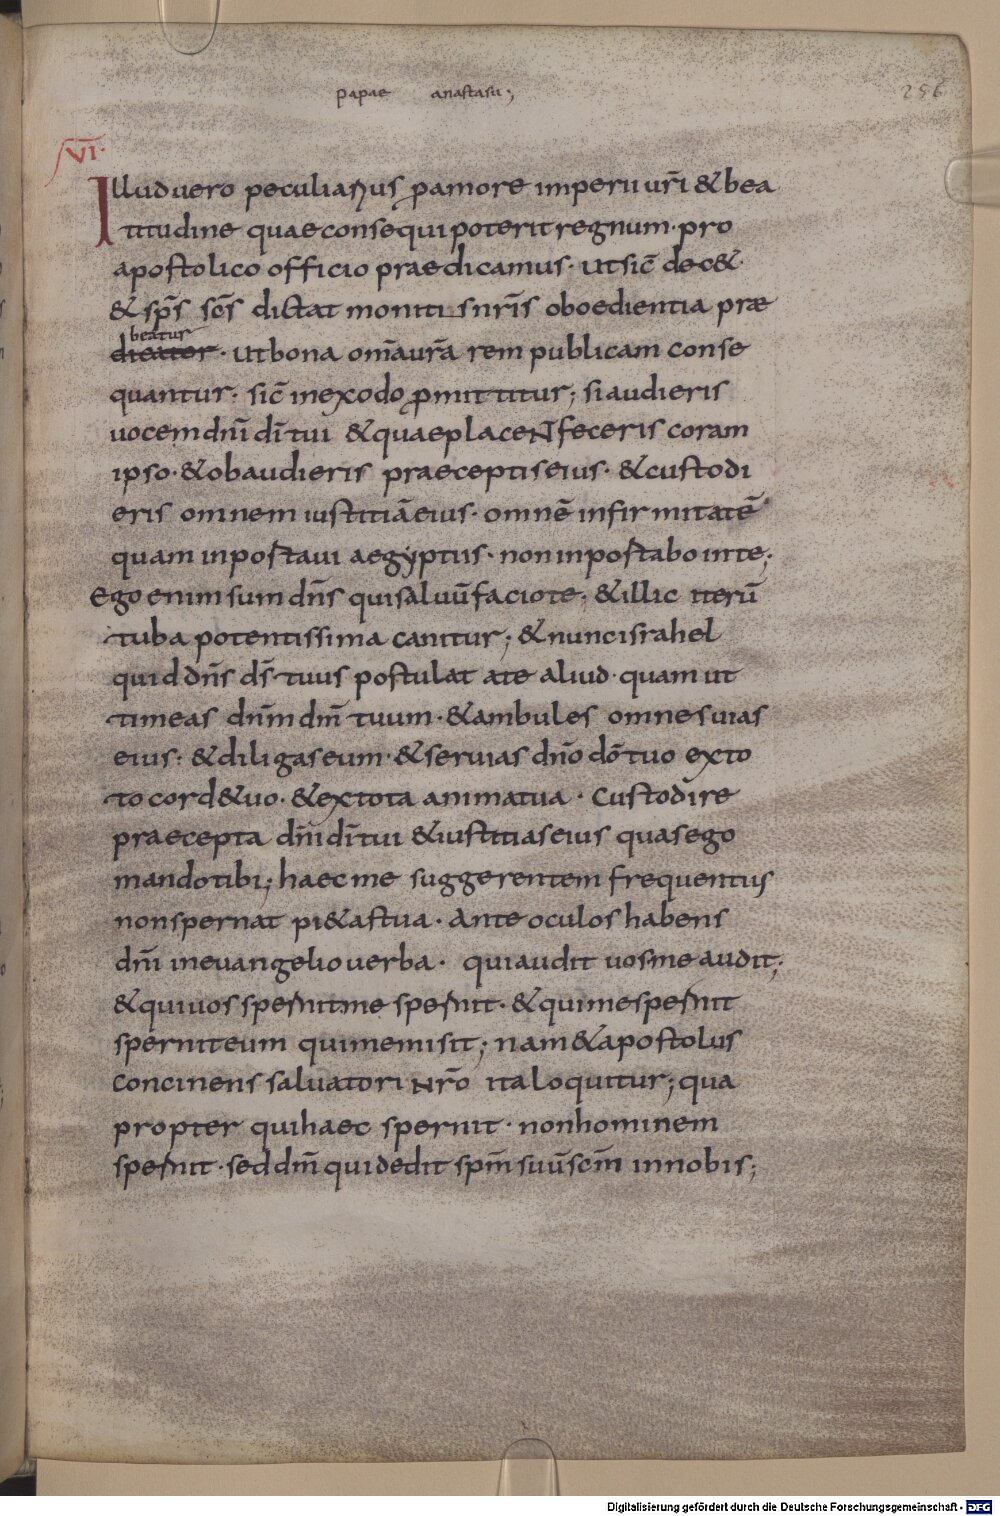 papae anastasii;
256
VI·
Illud uero peculiarius p amore imperii ur̄i & bea
titudine quae consequi poterit regnum· pro
apostolico officio praedicamus· ut sic̄ dec&·
& sp̄s sc̄s dictat monitis nr̄is oboedientia præ
beatur
dicator· ut bona om̄a ur̄a rem publicam conse
quantur· sic̄ in exodo pmittitur; si audieris
uocem dn̄i dī tui & quae placeNT feceris coram
ipso· & obaudieris praeceptis eius· & custodi
eris omnem iustitiā eius· omnē infirmitatē
quam inpostaui aegyptiis· non inpostabo in te;
Ego enim sum dn̄s qui saluū facio te; & illic iterū
tuba potentissima canitur; & nunc israhel
quid dn̄s ds̄ tuus postulat a te aliud· quam ut
timeas dnm̄ dm̄ tuum· & ambules omnes uias
eius: & diligas eum· & seruias dn̄o dō tuo ex to
to cord& uo· & ex tota anima tua· Custodire
praecepta dn̄i dī tui & iustitias eius quas ego
mando tibi; haec me suggerentem frequentius
non spernat pi&as tua· Ante oculos habens
dn̄i in euangelio uerba· qui audit uos me audit;
& qui uos spernit me spernit· & qui me spernit
spernit eum qui me misit; nam & apostolus
concinens saluatori Nr̄o ita loquitur; qua
propter qui haec spernit· non hominem
spernit· sed dm̄ qui dedit spm̄ suū scm̄ in nobis;
Digitalisierung gefördert durch die Deutsche Forschungsgemeinschaft - DFG